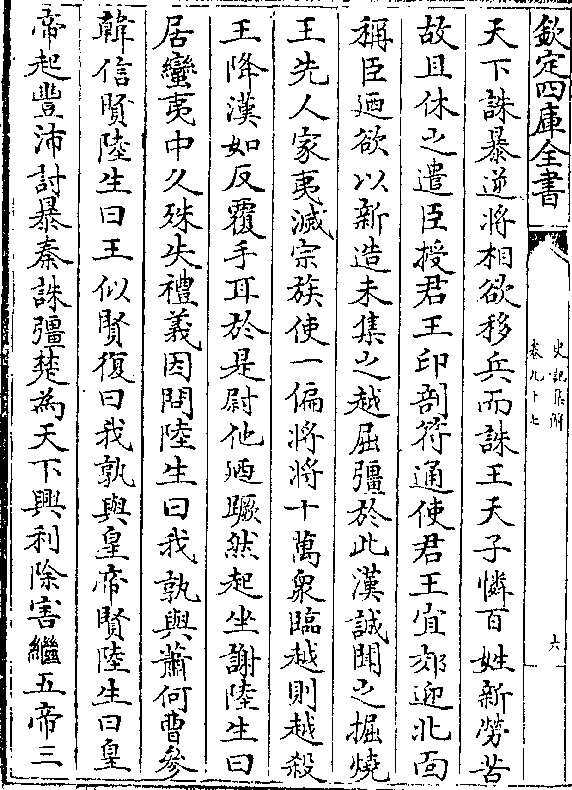 欽定四庫全書
史記集解
卷九十七
六
天下誅暴逆將相欲移兵而誅王天子憐百姓新勞苦
故且休之遣臣授君王印剖符通使君王宜郊迎北面
稱臣廼欲以新造未集之越屈彊於此漢誠聞之掘燒
王先人家夷滅宗族使一偏將將十萬衆臨越則越殺
王降漢如反覆手耳於是尉他廼蹶然起坐謝陸生曰
居蠻夷中久殊失禮義因問陸生曰我孰與蕭何曹參
韓信賢陸生曰王似賢復曰我孰與皇帝賢陸生曰皇
帝起豐沛討暴秦誅彊楚為天下興利除害繼五帝三